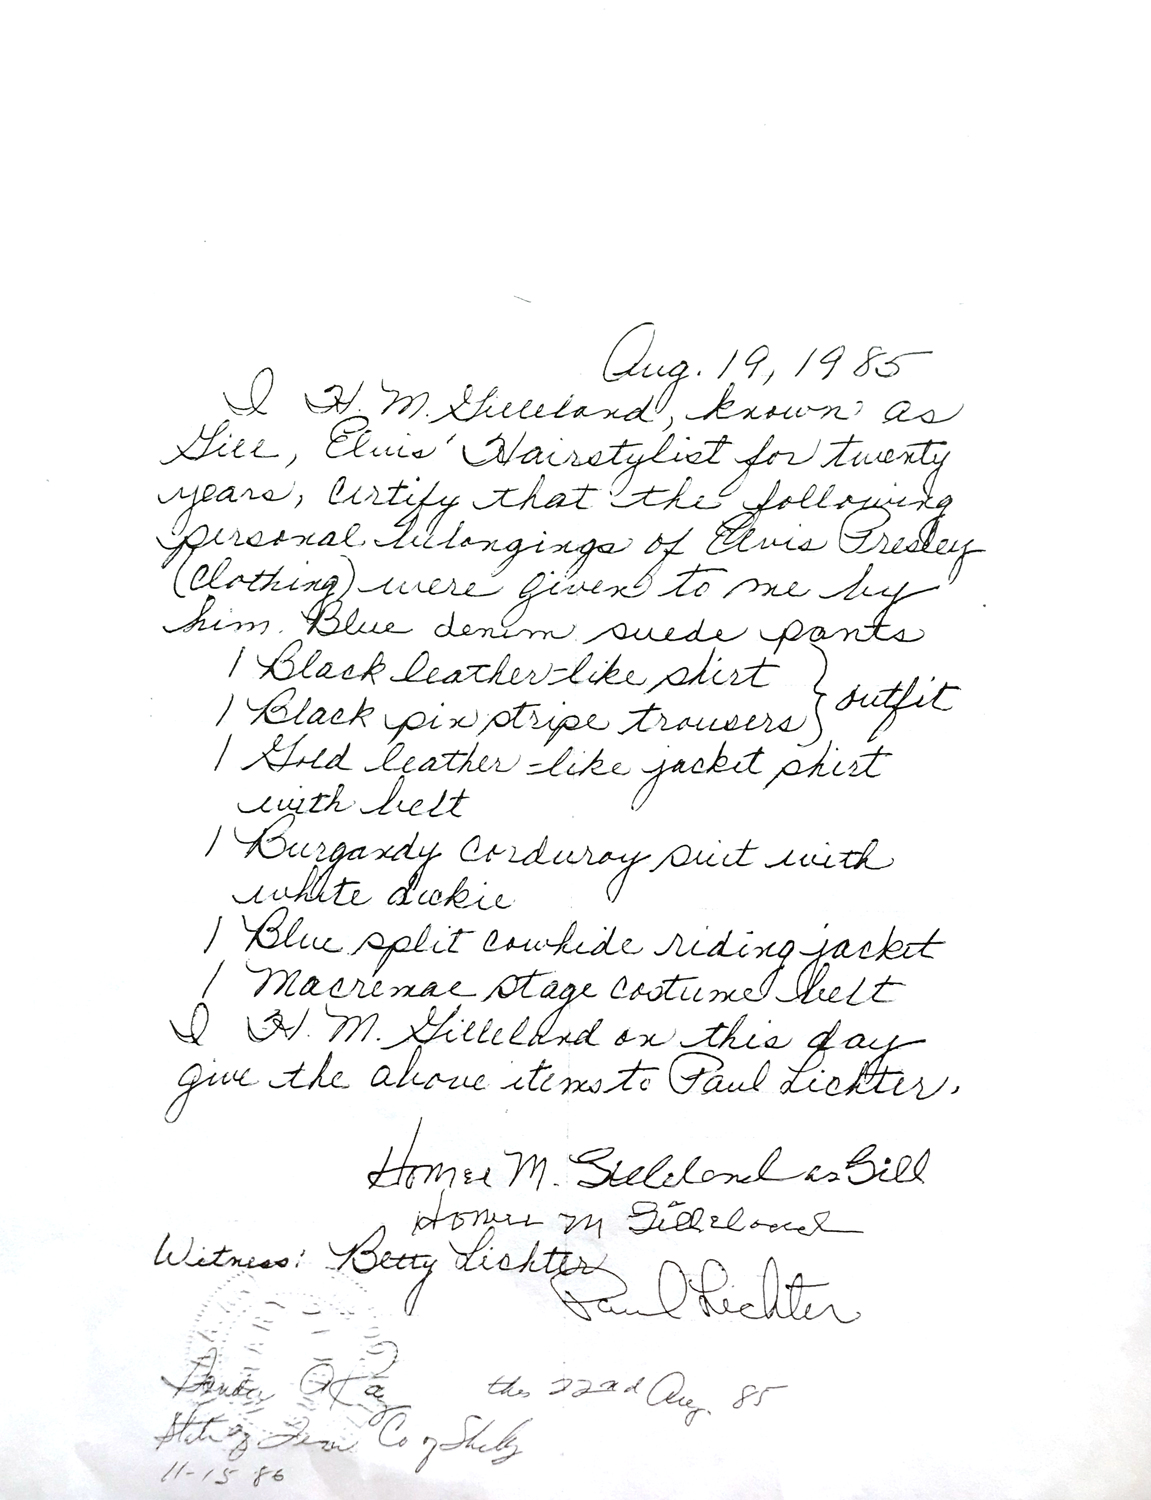 Aug. 19, 1985
I H. M. Gilleland, known as
Gill, Elvis' Hairstylist for twenty
years, certify that the following
personal belongings of Elvis Presley
(clothing) were given to me by
him. Blue denim suede pants
1 Black leather-like shirt
1 Black pin stripe trousers } outfit
1 Gold leather-like jacket shirt
with belt
1 Burgandy corduroy suit with
white dickie
1 Blue split cowhide riding jacket
1 Macremae stage costume belt
I H. M. Gilleland on this day
give the above items to Paul Lichter.
Homer M. Gilleland as Gill
Homer M Gilleland
Witness: Betty Lichter
Paul Lichter
this 22nd Aug. 85
State of Tenn Co of Shelby
11-15 86